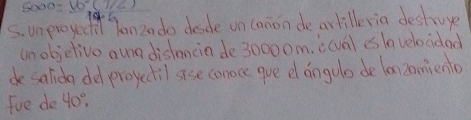 5000 = Vo² (1/2)
5. Un proyectil lanzado desde un cañón de artillería destruye
un objetivo a una distancia de 30000m. ¿cuál es la velocidad
de salida del proyectil si se conoce que el ángulo de lanzamiento
fue de 40°.